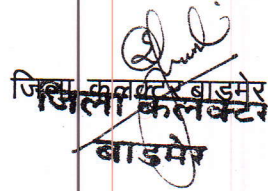 जिला कलक्टर बाड़मेर
जिला कलक्टर
बाडमेर